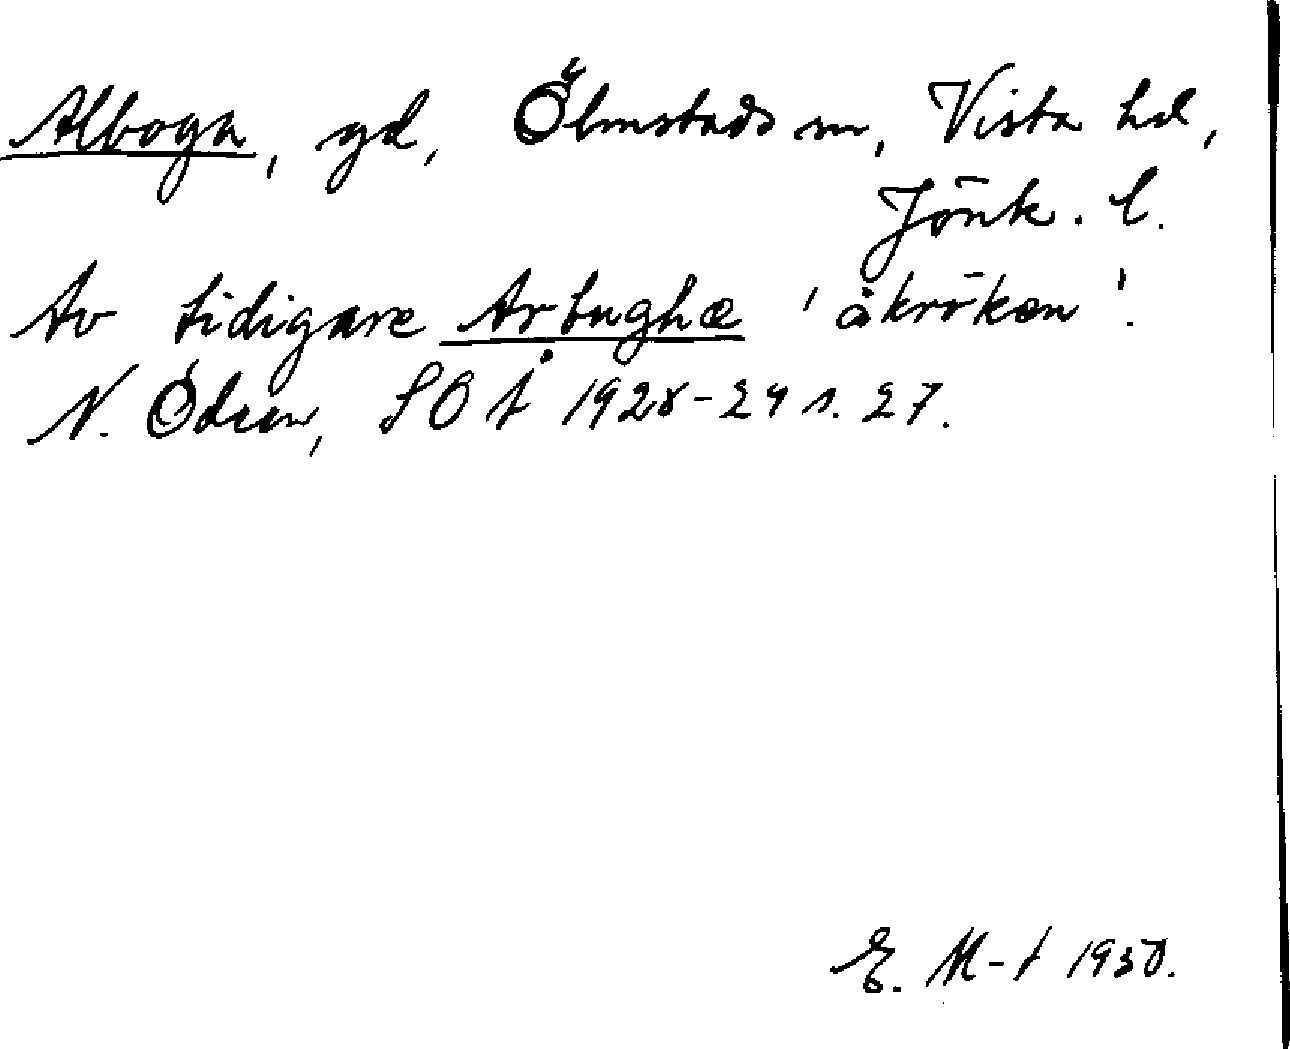 Alboga, gd, Ölmstads sn, Vista hd,
Jönk. l.
Av tidigare Arbughæ 'åkröken'.
N. Ödeen, SOÅ 1928-29 s. 27.
E. M-t 1930.